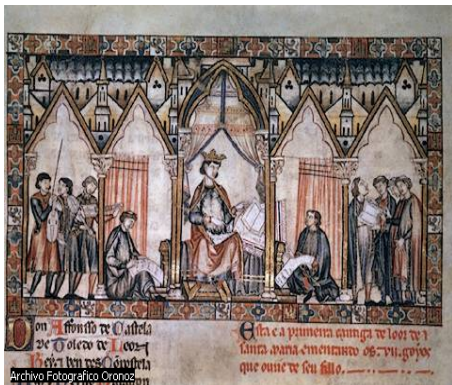 Don Affonso de Castela
de Toledo de Leon
Rey ⁊ ben des Conpostela
Esta e a primeira cantiga de loor de
santa maria ementando os .vii. goyos
que ouue de seu fillo.
Archivo Fotografico Oronoz